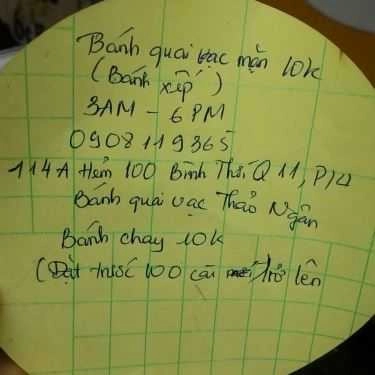 Bánh quai vạc mặn 10k
(Bánh xếp)
3AM - 6PM
0908119365
114A Hẻm 100 Bình Thới Q11, P14
Bánh quai vạc Thảo Ngân
Bánh chay 10k
(Đặt trước 100 cái trở lên